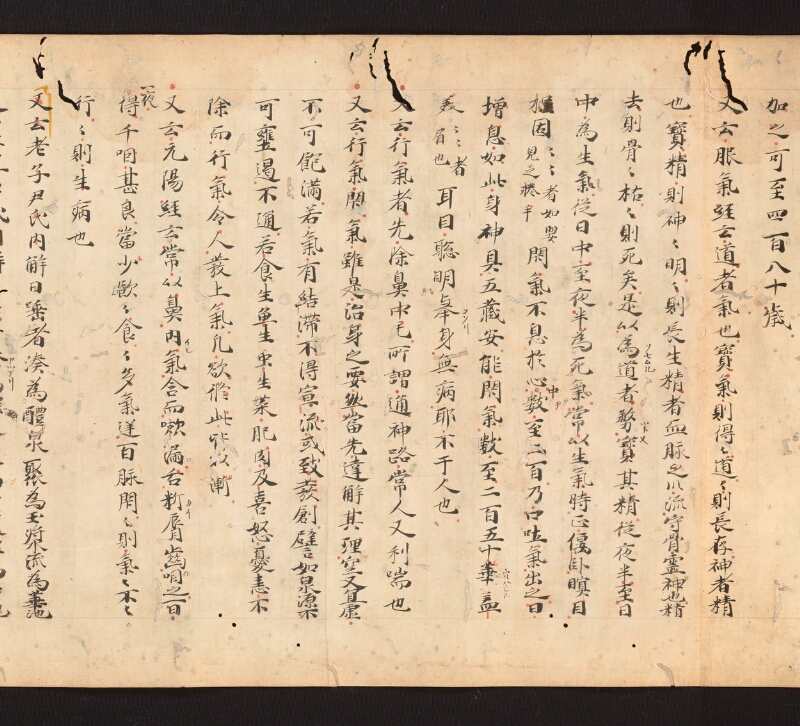 加之可至四百八十歳
又云服氣経云道者氣也寶氣則得〻道〻則長存神者精
也寶精則神〻明〻則長生精者血脉之川流守骨霊神也精
去則骨〻枯〻則死矣是以為道者務寶其精従夜半至日
中為生氣従日中至夜半為死氣常以生氣時正偃卧瞑目
握固〻〻者如嬰兒之捲手閇氣不息於心中數至二百乃口吐氣出之日
増息如此身神具五蔵安能閇氣數至二百五十華盖
美〻〻者眉也耳目聡明舉身無病耶不干人也
又云行氣者先除鼻中毛所謂通神路常人又利喘也
又云行氣閇氣雖是治身之要然當先達解其理空又宜虚
不可飽満若氣有結滞不得宣流或致發創譬如泉源不
可壅遏不通若食生魚生虫生菜肥肉及喜怒憂恚不
除而行氣令人發上氣凡欲修此皆以漸
又云元陽経云常以鼻内氣含而嗽満舌析脣齒咽之一日
一夜得千咽甚良當少飲〻食〻多氣逆百脉閇〻則氣〻不〻
行〻則生病也
又云老子尹氏内解曰唾者湊為醴泉聚為玉漿流為華池